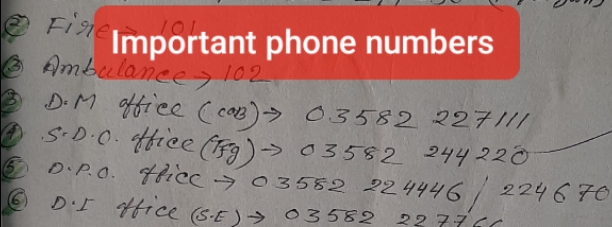 ② Fire → 101
Important phone numbers
③ Ambulance → 102
③ D.M office (COB) → 03582 227111
④ S.D.O. office (Tfg) → 03582 244220
⑤ D.P.O. office → 03582 224446 / 224670
⑥ D.I office (S.E) → 03582